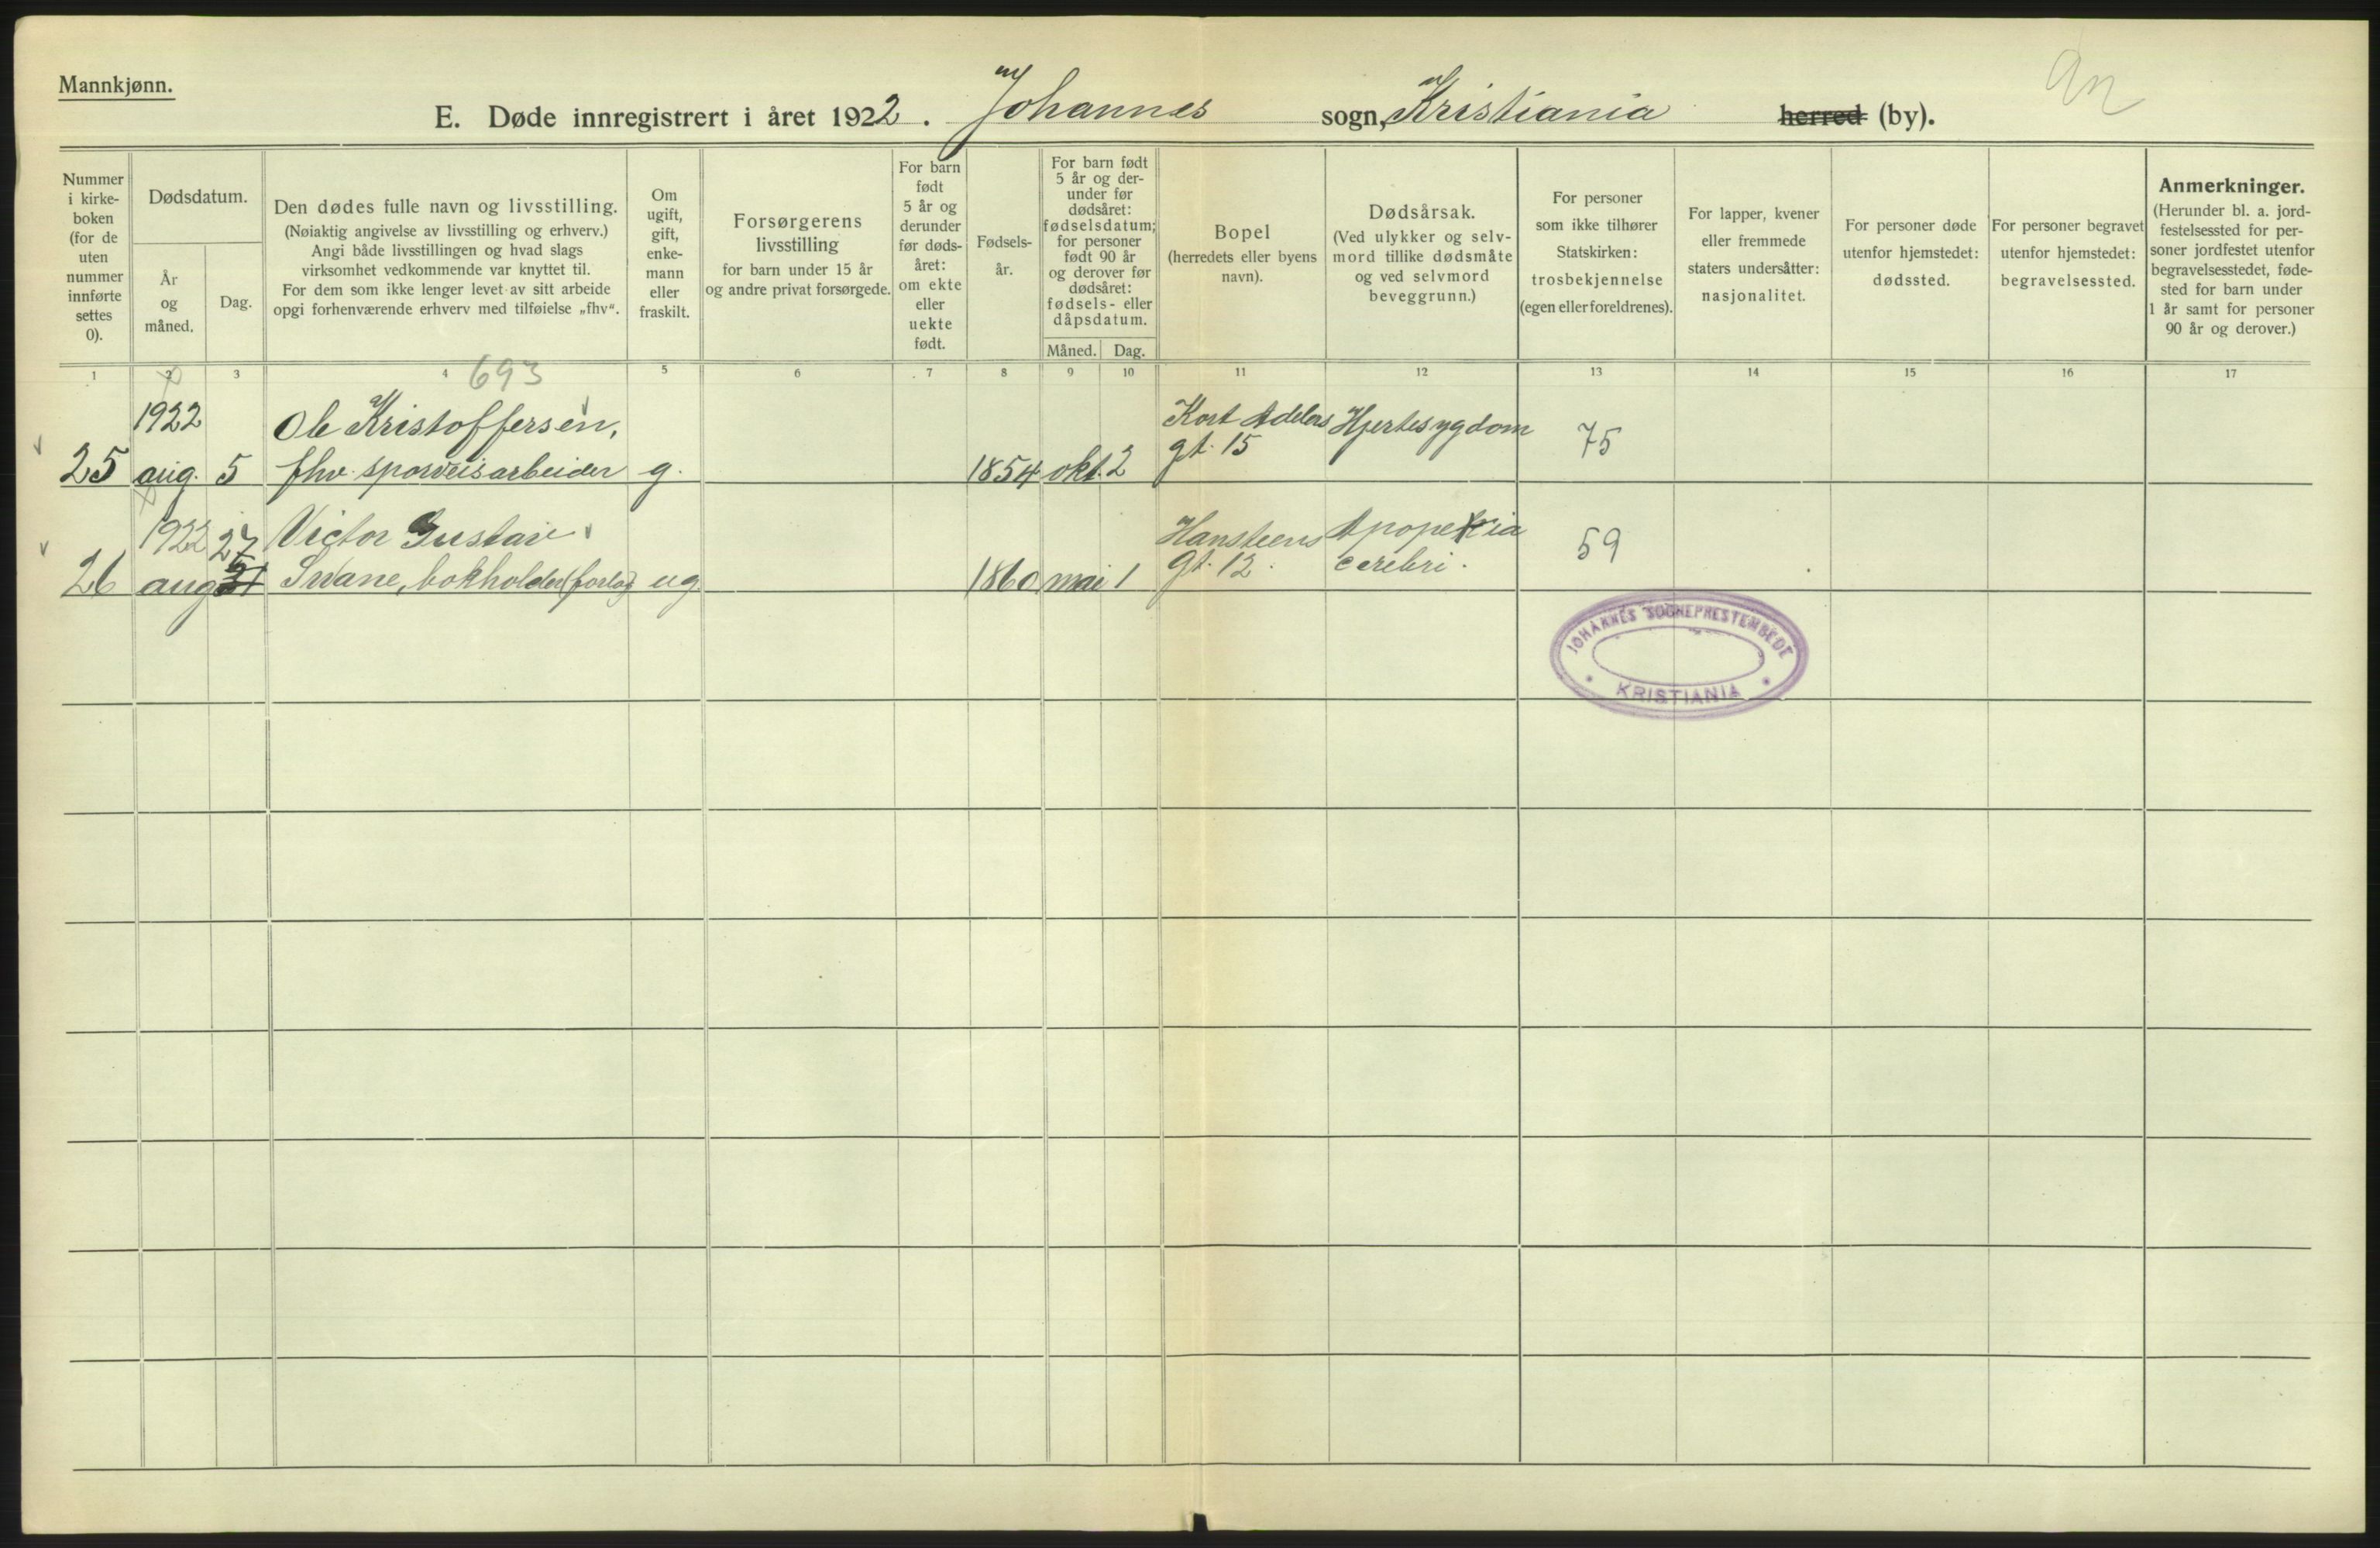 Mannkjønn.
E. Døde innregistrert i året 1922. Johannes sogn, Kristiania herred (by).
Nummer
i kirke-
boken
(for de
uten
nummer
innførte
settes
0).
Dødsdatum.
År
og
måned.
Dag.
Den dødes fulle navn og livsstilling.
(Nøiaktig angivelse av livsstilling og erhverv.)
Angi både livsstillingen og hvad slags
virksomhet vedkommende var knyttet til.
For dem som ikke lenger levet av sitt arbeide
opgi forhenværende erhverv med tilføielse „fhv“.
Om
ugift,
gift,
enke-
mann
eller
fraskilt.
Forsørgerens
livsstilling
for barn under 15 år
og andre privat forsørgede.
For barn
født
5 år og
derunder
før døds-
året:
om ekte
eller
uekte
født.
Fødsels-
år.
For barn født
5 år og der-
under før
dødsåret:
fødselsdatum;
for personer
født 90 år
og derover før
dødsåret:
fødsels- eller
dåpsdatum.
Måned. Dag.
Bopel
(herredets eller byens
navn).
Dødsårsak.
(Ved ulykker og selv-
mord tillike dødsmåte
og ved selvmord
beveggrunn.)
For personer
som ikke tilhører
Statskirken:
trosbekjennelse
(egen eller foreldrenes).
For lapper, kvener
eller fremmede
staters undersåtter:
nasjonalitet.
For personer døde
utenfor hjemstedet:
dødssted.
For personer begravet
utenfor hjemstedet:
begravelsessted.
Anmerkninger.
(Herunder bl. a. jord-
festelsessted for per-
soner jordfestet utenfor
begravelsesstedet, føde-
sted for barn under
1 år samt for personer
90 år og derover.)
1 2 3 4 5 6 7 8 9 10 11 12 13 14 15 16 17
693
1922 Ole Kristoffersen, Kort Adelers Hjertesygdom 75
25 aug. 5 fhv. sporveisarbeider g. 1854 okt. 2 gt. 15
1922 27 Victor Gustav Hansteens 59
26 aug 31 Swane, bokholder (forlag) ug. 1860 mai 1 gt. 12 cerebri.
JOHANNES SOGNEPRESTEMBEDE
KRISTIANIA